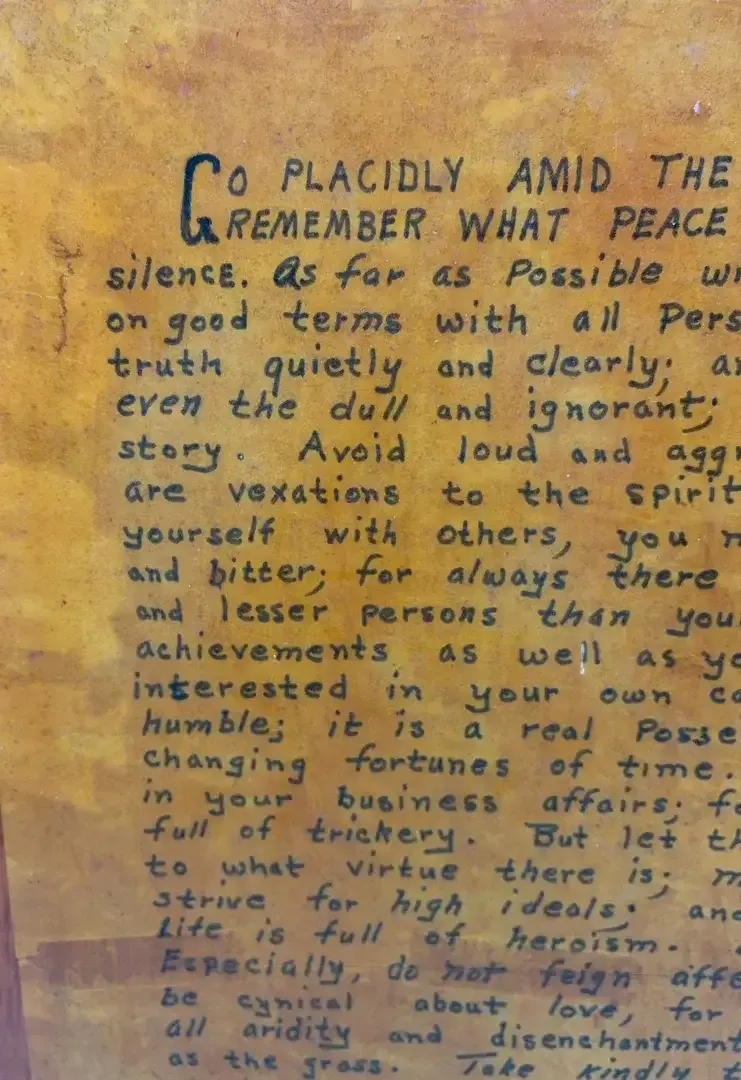 GO PLACIDLY AMID THE
REMEMBER WHAT PEACE
silence. As far as Possible
on good terms with all
truth quietly and clearly;
even the dull and ignorant;
story. Avoid loud and
are vexations to the spirit
yourself with others, you
and bitter; for always there
and lesser persons than
achievements as well as
interested in your own
humble; it is a real
changing fortunes of time.
in your business affairs;
full of trickery. But let
to what virtue there is;
strive for high ideals;
Life is full of heroism.
Especially, do not feign
be cynical about love, for
all aridity and disenchantment
as the grass. Take kindly